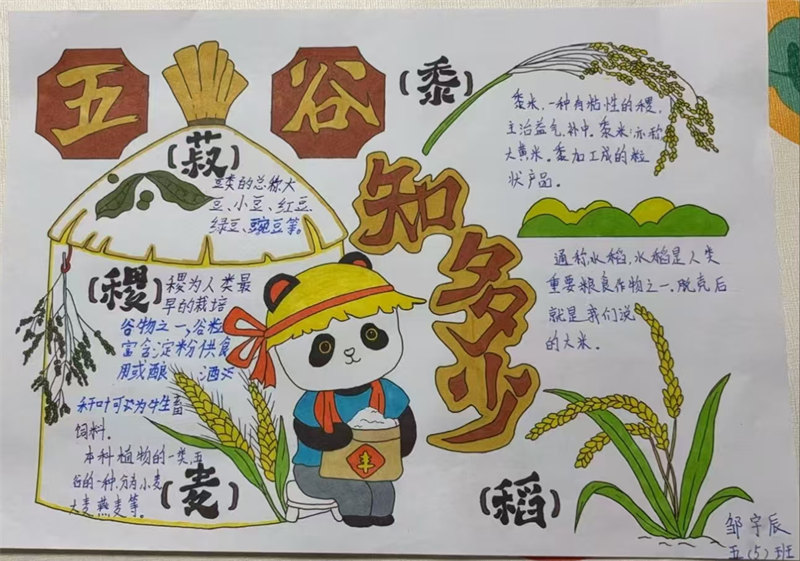 五谷
知多少
(黍)
黍米，一种有粘性的稷，
主治益气，补中。黍米亦称
大黄米。黍加工成的粒
状产品。
(菽)
豆类的总称大
豆、小豆、红豆、
绿豆、豌豆等。
(稷)
稷为人类最
早的栽培
谷物之一，谷粒
富含淀粉供食
用或酿 酒
秆叶可以为牛生畜
饲料。
本科植物的一类，五
谷的一种，分有小麦
大麦燕麦等。
(麦)
丰
通称水稻，水稻是人类
重要粮食作物之一，脱壳后
就是我们说
的大米。
(稻)
邹宇辰
五(5)班